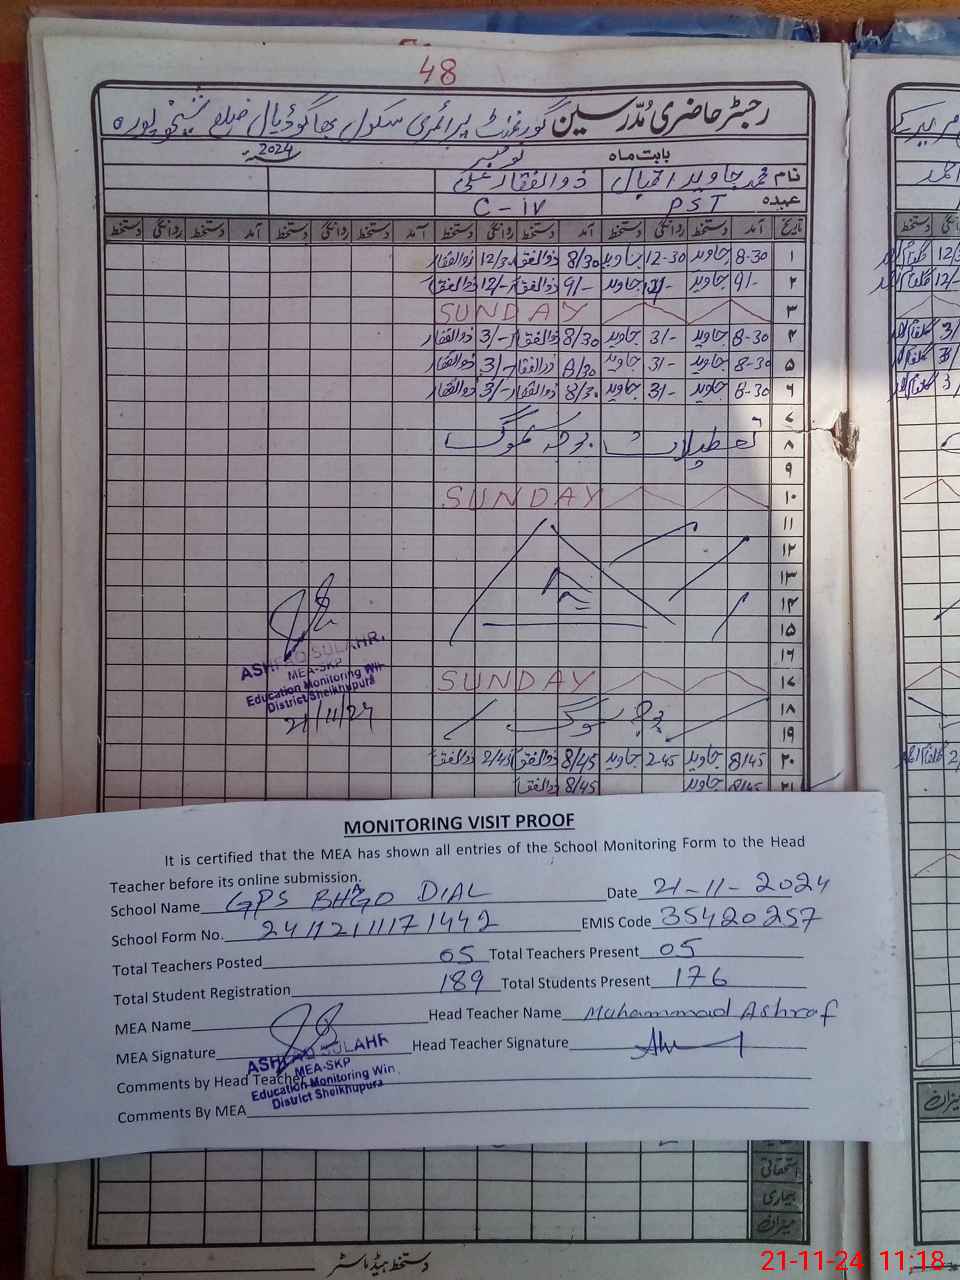 48
رجسٹر حاضری مدرسین گورنمنٹ پرائمری سکول بھاگوڈیال ضلع شیخوپورہ
بابت ماہ نومبر 2024
نام محمد جاوید اقبال ذوالفقار علی
عہدہ PST C-14
تاریخ آمد دستخط روانگی دستخط آمد دستخط روانگی دستخط آمد دستخط روانگی دستخط آمد دستخط روانگی دستخط
۱ 8-30 جاوید 12-30 جاوید 8/30 ذوالفقار 12/30 ذوالفقار
۲ 9/- جاوید 12/- جاوید 9/- ذوالفقار 12/- ذوالفقار
۳ SUNDAY
۴ 8-30 جاوید 3/- جاوید 8/30 ذوالفقار 3/- ذوالفقار
۵ 8-30 جاوید 3/- جاوید 8/30 ذوالفقار 3/- ذوالفقار
۶ 8-30 جاوید 3/- جاوید 8/30 ذوالفقار 3/- ذوالفقار
۷
۸ تعطیلات بوجہ سموگ
۹
۱۰ SUNDAY
۱۱
۱۲
۱۳
۱۴
۱۵
۱۶
۱۷ SUNDAY
۱۸ سموگ
۱۹
۲۰ 8/45 جاوید 2-45 جاوید 8/45 ذوالفقار 2/45 ذوالفقار
۲۱ 8/45 جاوید 8/45 ذوالفقار
ASHFAQ SULAHR
MEA-SKP
Education Monitoring Win
District Sheikhupura
21/11/24
MONITORING VISIT PROOF
It is certified that the MEA has shown all entries of the School Monitoring Form to the Head
Teacher before its online submission.
School Name GPS BHAGO DIAL Date 21-11-2024
School Form No. 2411211171442 EMIS Code 35420257
Total Teachers Posted 05 Total Teachers Present 05
Total Student Registration 189 Total Students Present 176
MEA Name Head Teacher Name Muhammad Ashraf
MEA Signature Head Teacher Signature
ASHFAQ SULAHR
MEA-SKP
Education Monitoring Win
District Sheikhupura
Comments by Head Teacher
Comments By MEA
استحقاقی
بیماری
میزان
دستخط ہیڈ ماسٹر
21-11-24 11:18